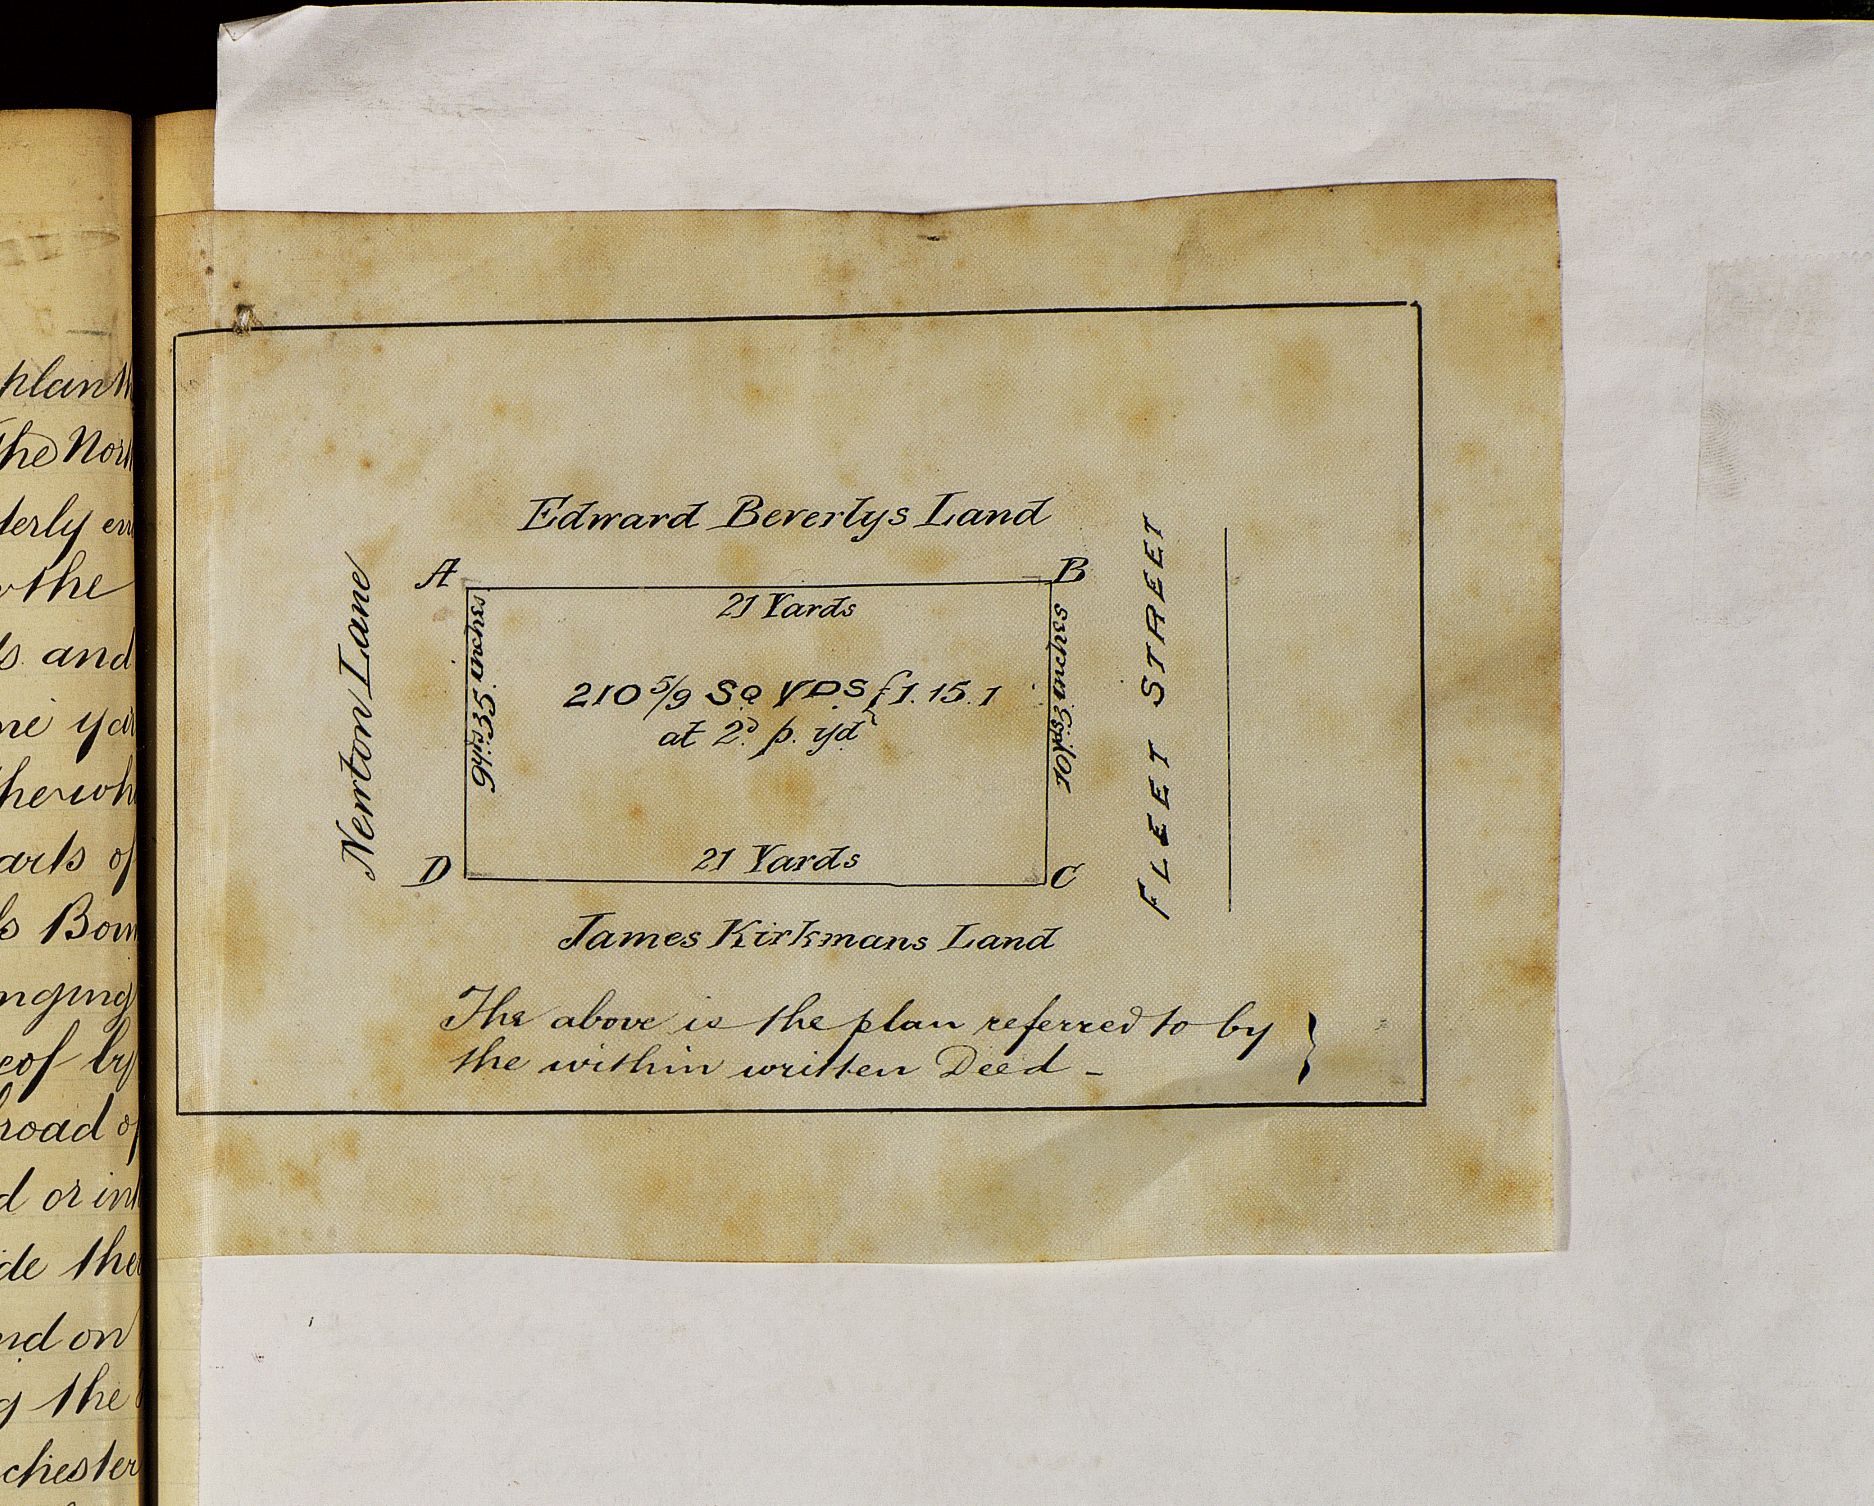 plan
the Nor
terly en
the
and
yar
arts of
Bou
nging
eof by
road of
or in
ide the
nd on
the
chester
Edward Beverlys Land
A
B
21 Yards
Newton Lane
9yds 35 inches
210 5/9 SQ YDS £1.15.1
at 2d p. yd
10yds 3 inches
FLEET STREET
21 Yards
D
C
James Kirkmans Land
The above is the plan referred to by
the within written Deed -